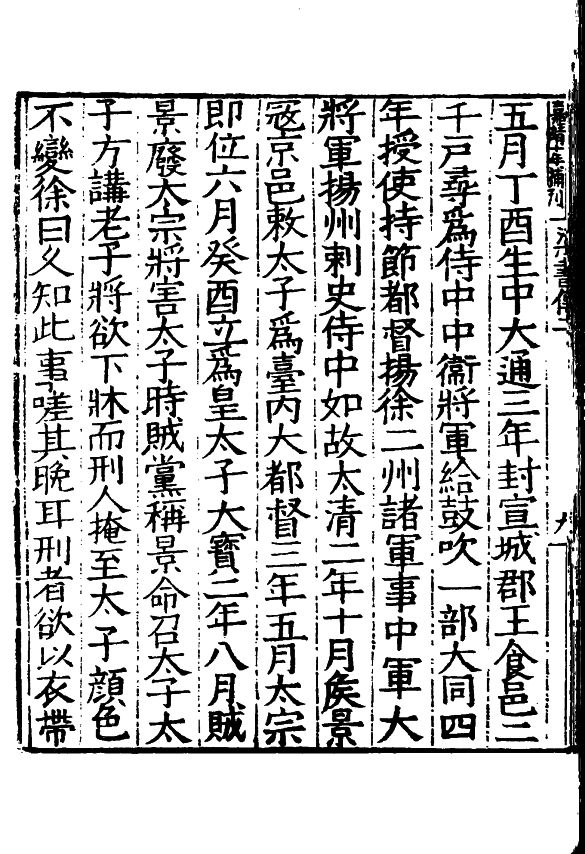 五月丁酉生中大通三年封宣城郡王食邑二
千戸尋爲侍中中衞將軍給鼓吹一部大同四
年授使持節都督揚徐二州諸軍事中軍大
將軍揚州刺史侍中如故太清二年十月侯景
寇京邑敕太子爲臺内大都督三年五月太宗
即位六月癸酉立爲皇太子大寳二年八月賊
景廢太宗將害太子時賊黨稱景命召太子太
子方講老子將欲下牀而刑人掩至太子顔色
不變徐曰久知此事嗟其晚耳刑者欲以衣帶